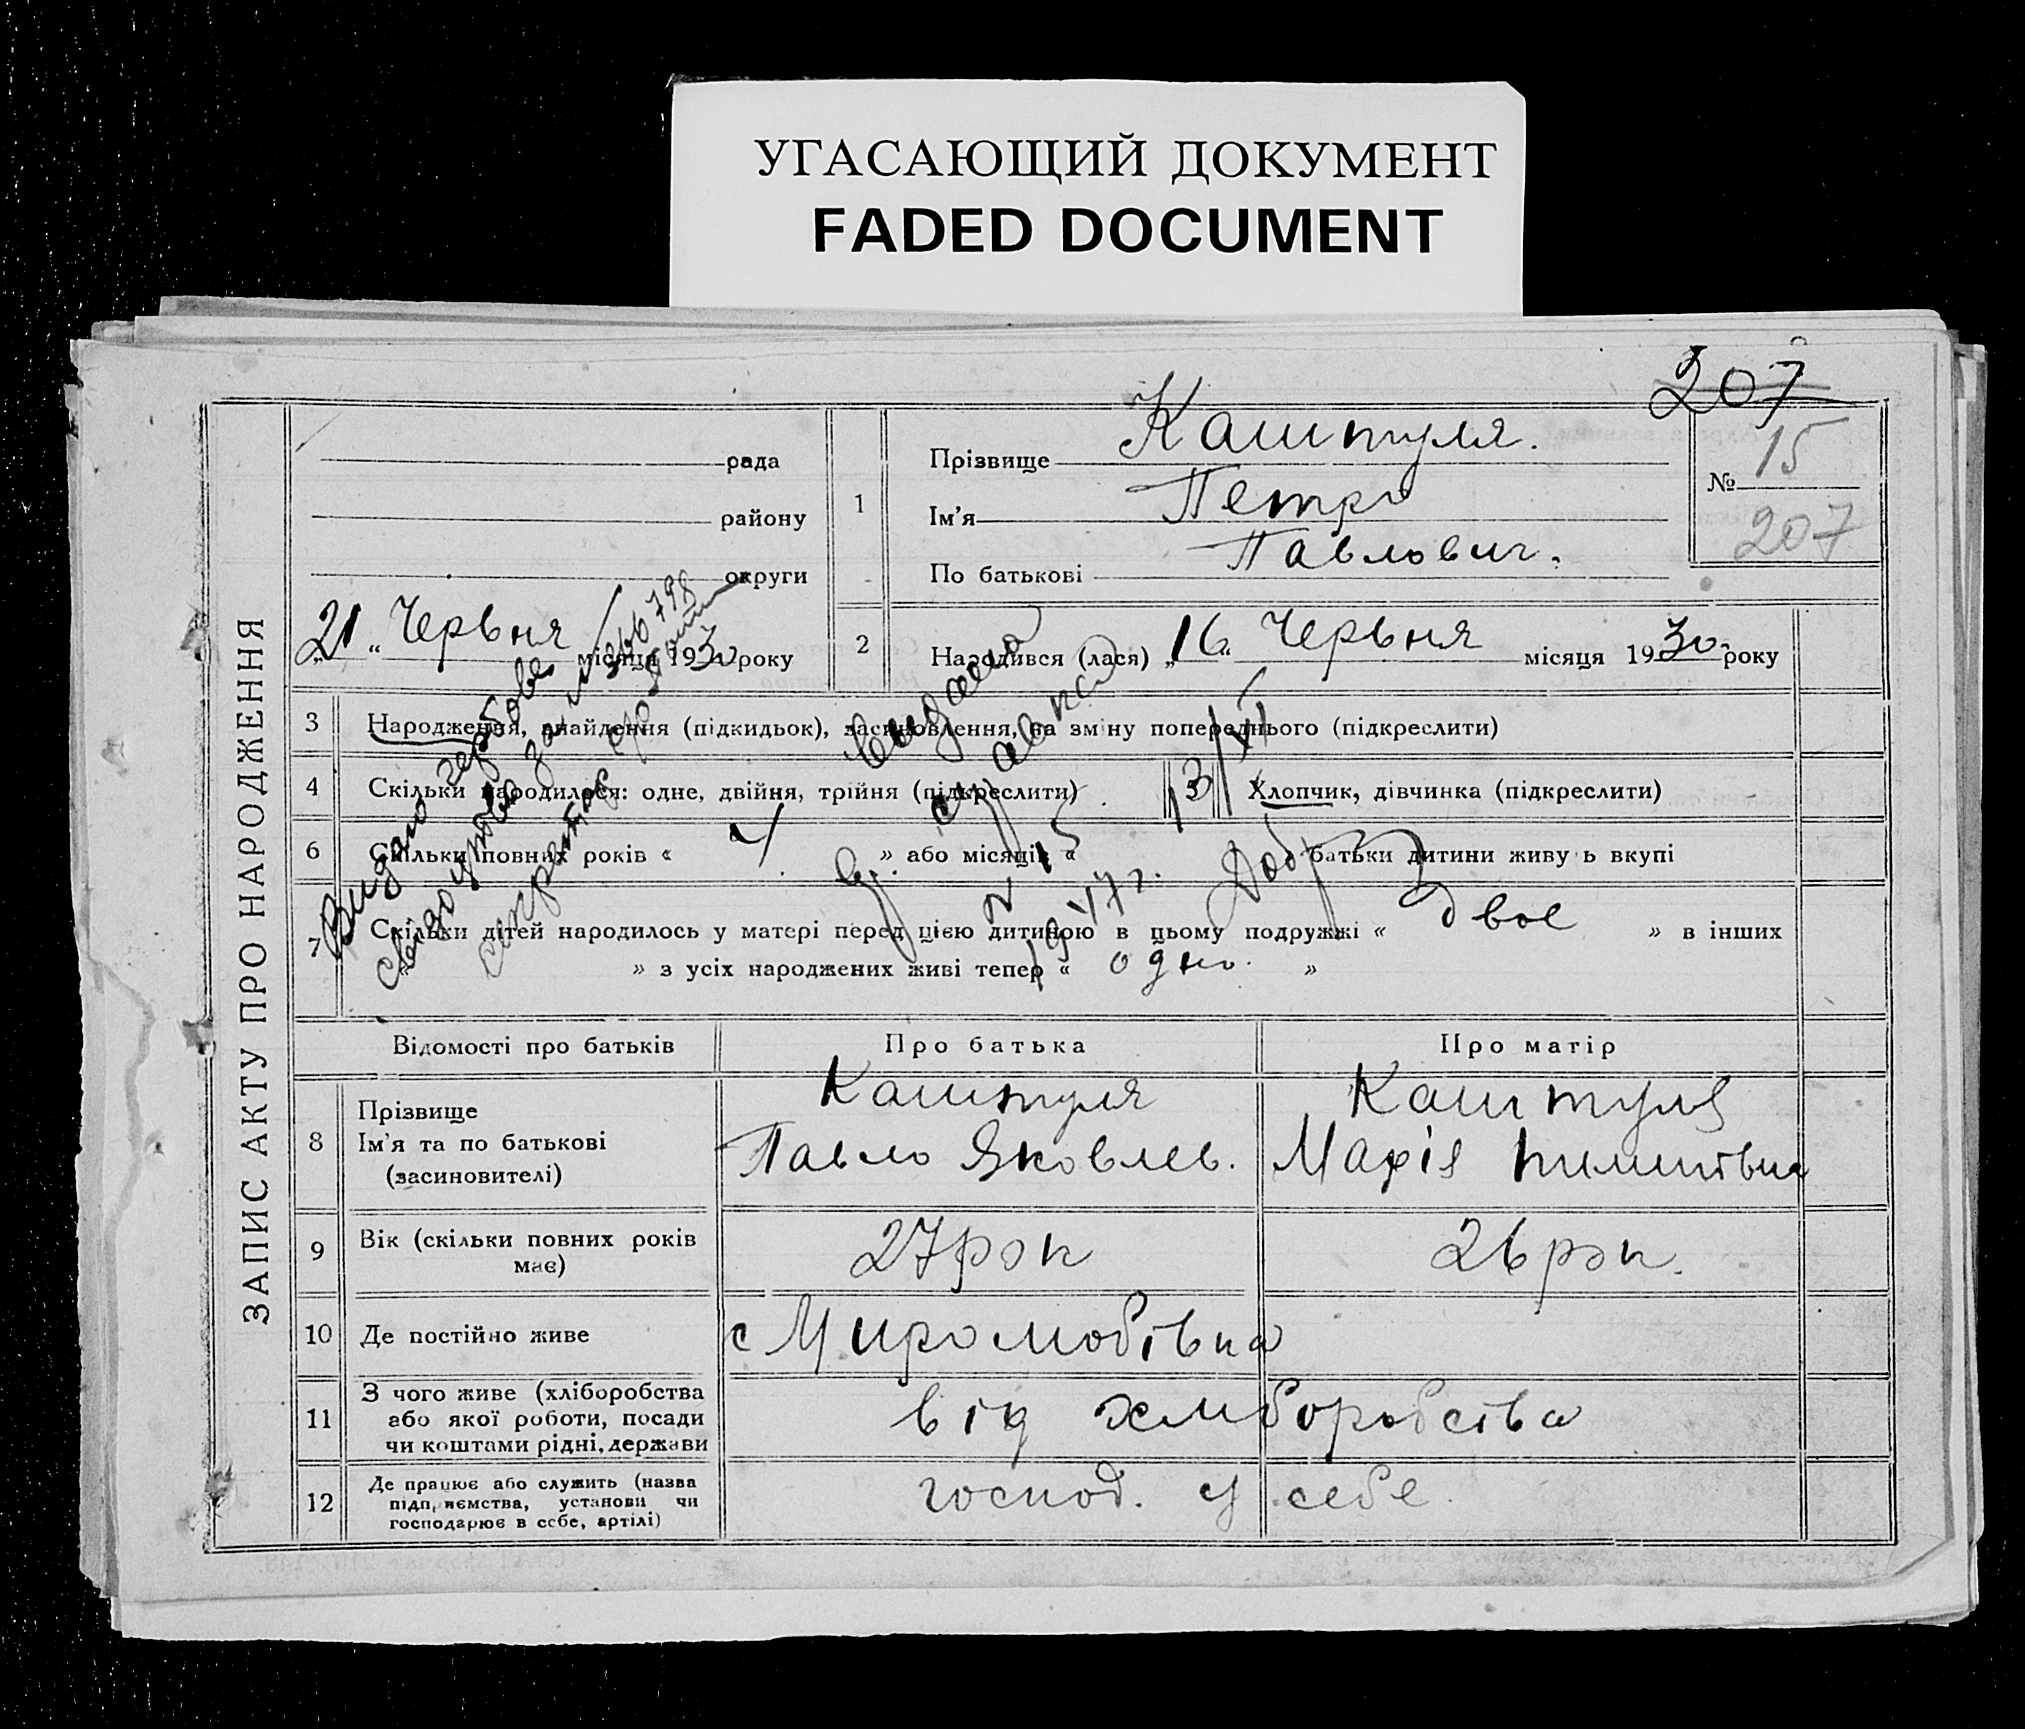 УГАСАЮЩИЙ ДОКУМЕНТ
FADED DOCUMENT
207
ЗАПИС АКТУ ПРО НАРОДЖЕННЯ
рада
району
округи
„21“ Червня місяця 1930 року
1
Прізвище Каштуля.
Ім'я Петро
По батькові Павлович.
№ 15
207
2 Народився (лася) „16“ Червня місяця 1930 року
3 Народження, знайдення (підкидьок), засиновлення, на зміну попереднього (підкреслити)
4 Скільки народилося: одне, двійня, трійня (підкреслити)
Хлопчик, дівчинка (підкреслити)
6 Скільки повних років « 4 » або місяців « батьки дитини живуть вкупі
7 Скільки дітей народилось у матері перед цією дитиною в цьому подружжі « двое » в інших
» з усіх народжених живі тепер « одно. »
Видано гербове
свідоцтво за №
секретар
видана
справка
№ 15
1947 г.
Відомості про батьків Про батька Про матір
8 Прізвище
Ім'я та по батькові
(засиновителі)
Каштуля
Павло Яковлев.
Каштуля
Марія
9 Вік (скільки повних років
має)
27 рок
26 рок.
10 Де постійно живе
с Миролюбівка
11 З чого живе (хліборобства
або якої роботи, посади
чи коштами рідні, держави
від хліборобства
12 Де працює або служить (назва
підприємства, установи чи
господарює в себе, артілі)
господ. у себе.